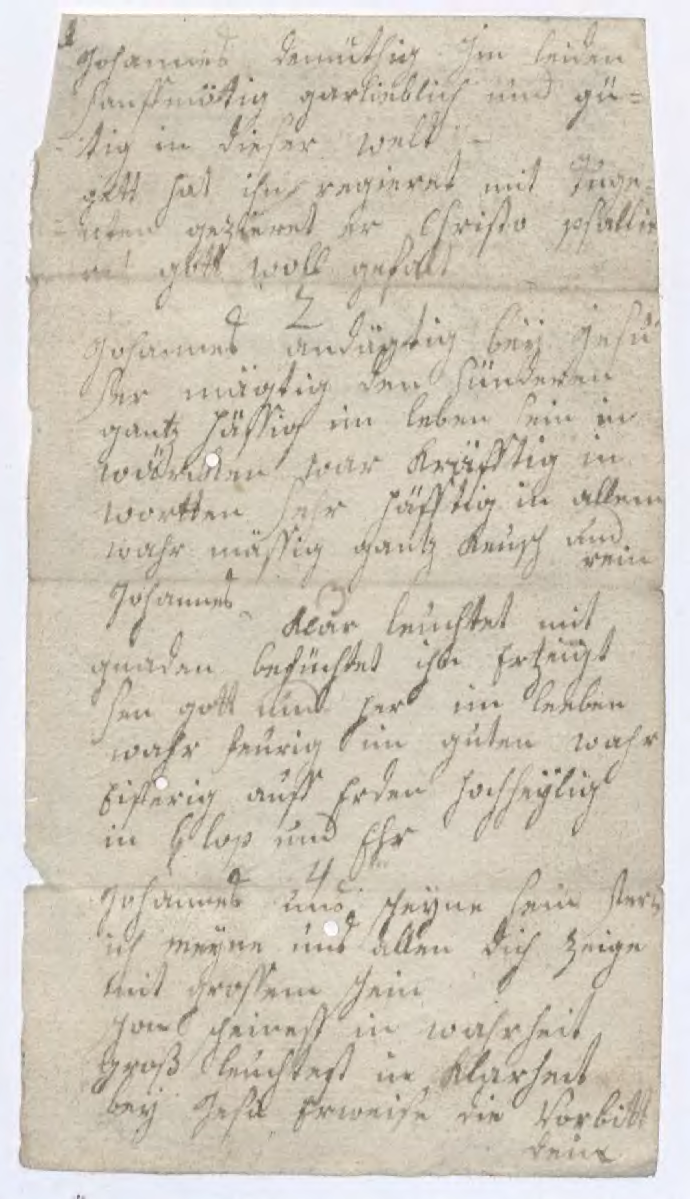 1
Johannes demüthig Im leiden
sanfftmötig garlieblich und gü-
tig in dieser welt
gott hat ihn regieret mit Tuge-
nten gezieret er Christo psallie
ret gott woll gefalt
2
Johannes andägtig bey Jesu
ser mägtig den sünderen
gantz hässig im leben sein in
wörcken war kräfftig in
wortten sehr häfftig in allem
wahr mässig gantz keusch und
rein
3
Johannes klar leuchtet mit
gnaden befüchtet ihn Erzeigt
hen gott und her im leeben
wahr feurig im guten wahr
Eifferig auff Erden hochheÿlig
in lop und Ehr
4
Johannes uns scheyne sein
ich meÿne uns allen dich zeige
mit grossem schein
scheinest in wahrheit
groß leuchtest in klarheit
beÿ Jesu Erweise die Vorbitt
dein